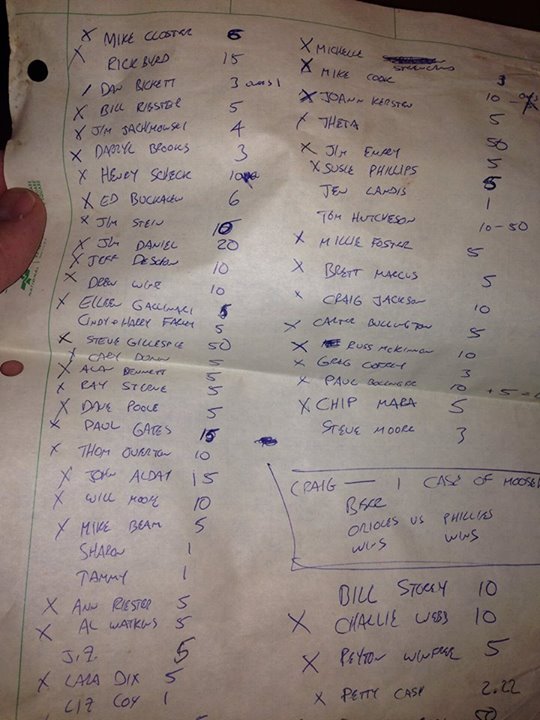 X MIKE CLOSTER 6
X RICK BYRD 15
/ DAN BICKETT 3
X BILL RIESTER 5
X JIM JACHMOWSKI 4
X DARRYL BROOKS 3
X HENRY SCHECK 10
X ED BUCKALEW 6
X JIM STEIN 10
X JIM DANIEL 20
X JEFF 10
X DREW WINE 10
X EILEEN GALLINARI 5
CINDY + HARRY 5
X STEVE GILLESPIE 50
X CARY DUNN 5
X ALAN BENNETT 5
X RAY 5
X DAVE POOLE 5
X PAUL GATES 15
X THOM OVERTON 10
X JOHN ALDAY 15
X WILL MOORE 10
X MIKE BEAM 5
SHARON 1
TAMMY 1
X ANN RIESTER 5
X AL WATKINS 5
J.Z. 5
X LARA DIX 5
LIZ COX 1
X MICHELLE
X MIKE COOK 3
X JOANN KERSTEN 10
X THETA 5
X JIM EMERY 50
X SUSIE PHILLIPS 5
JEN LANDIS 5
TOM HUTCHESON 1
X MILLIE FOSTER 5
10-50
X BRETT MARCUS 5
X CRAIG JACKSON 10
X CARTER BULLINGTON 5
X RUSS MCKINNON 10
X GREG 3
X PAUL 10 + 5 =
X CHIP MARA 5
STEVE MOORE 3
CRAIG — 1 CASE OF MOOSE
BEER
ORIOLES VS PHILLIES
WINS WINS
BILL STOREY 10
X CHARLIE WEBB 10
X PEYTON WINFREE 5
X PETTY CASH 2.22
50